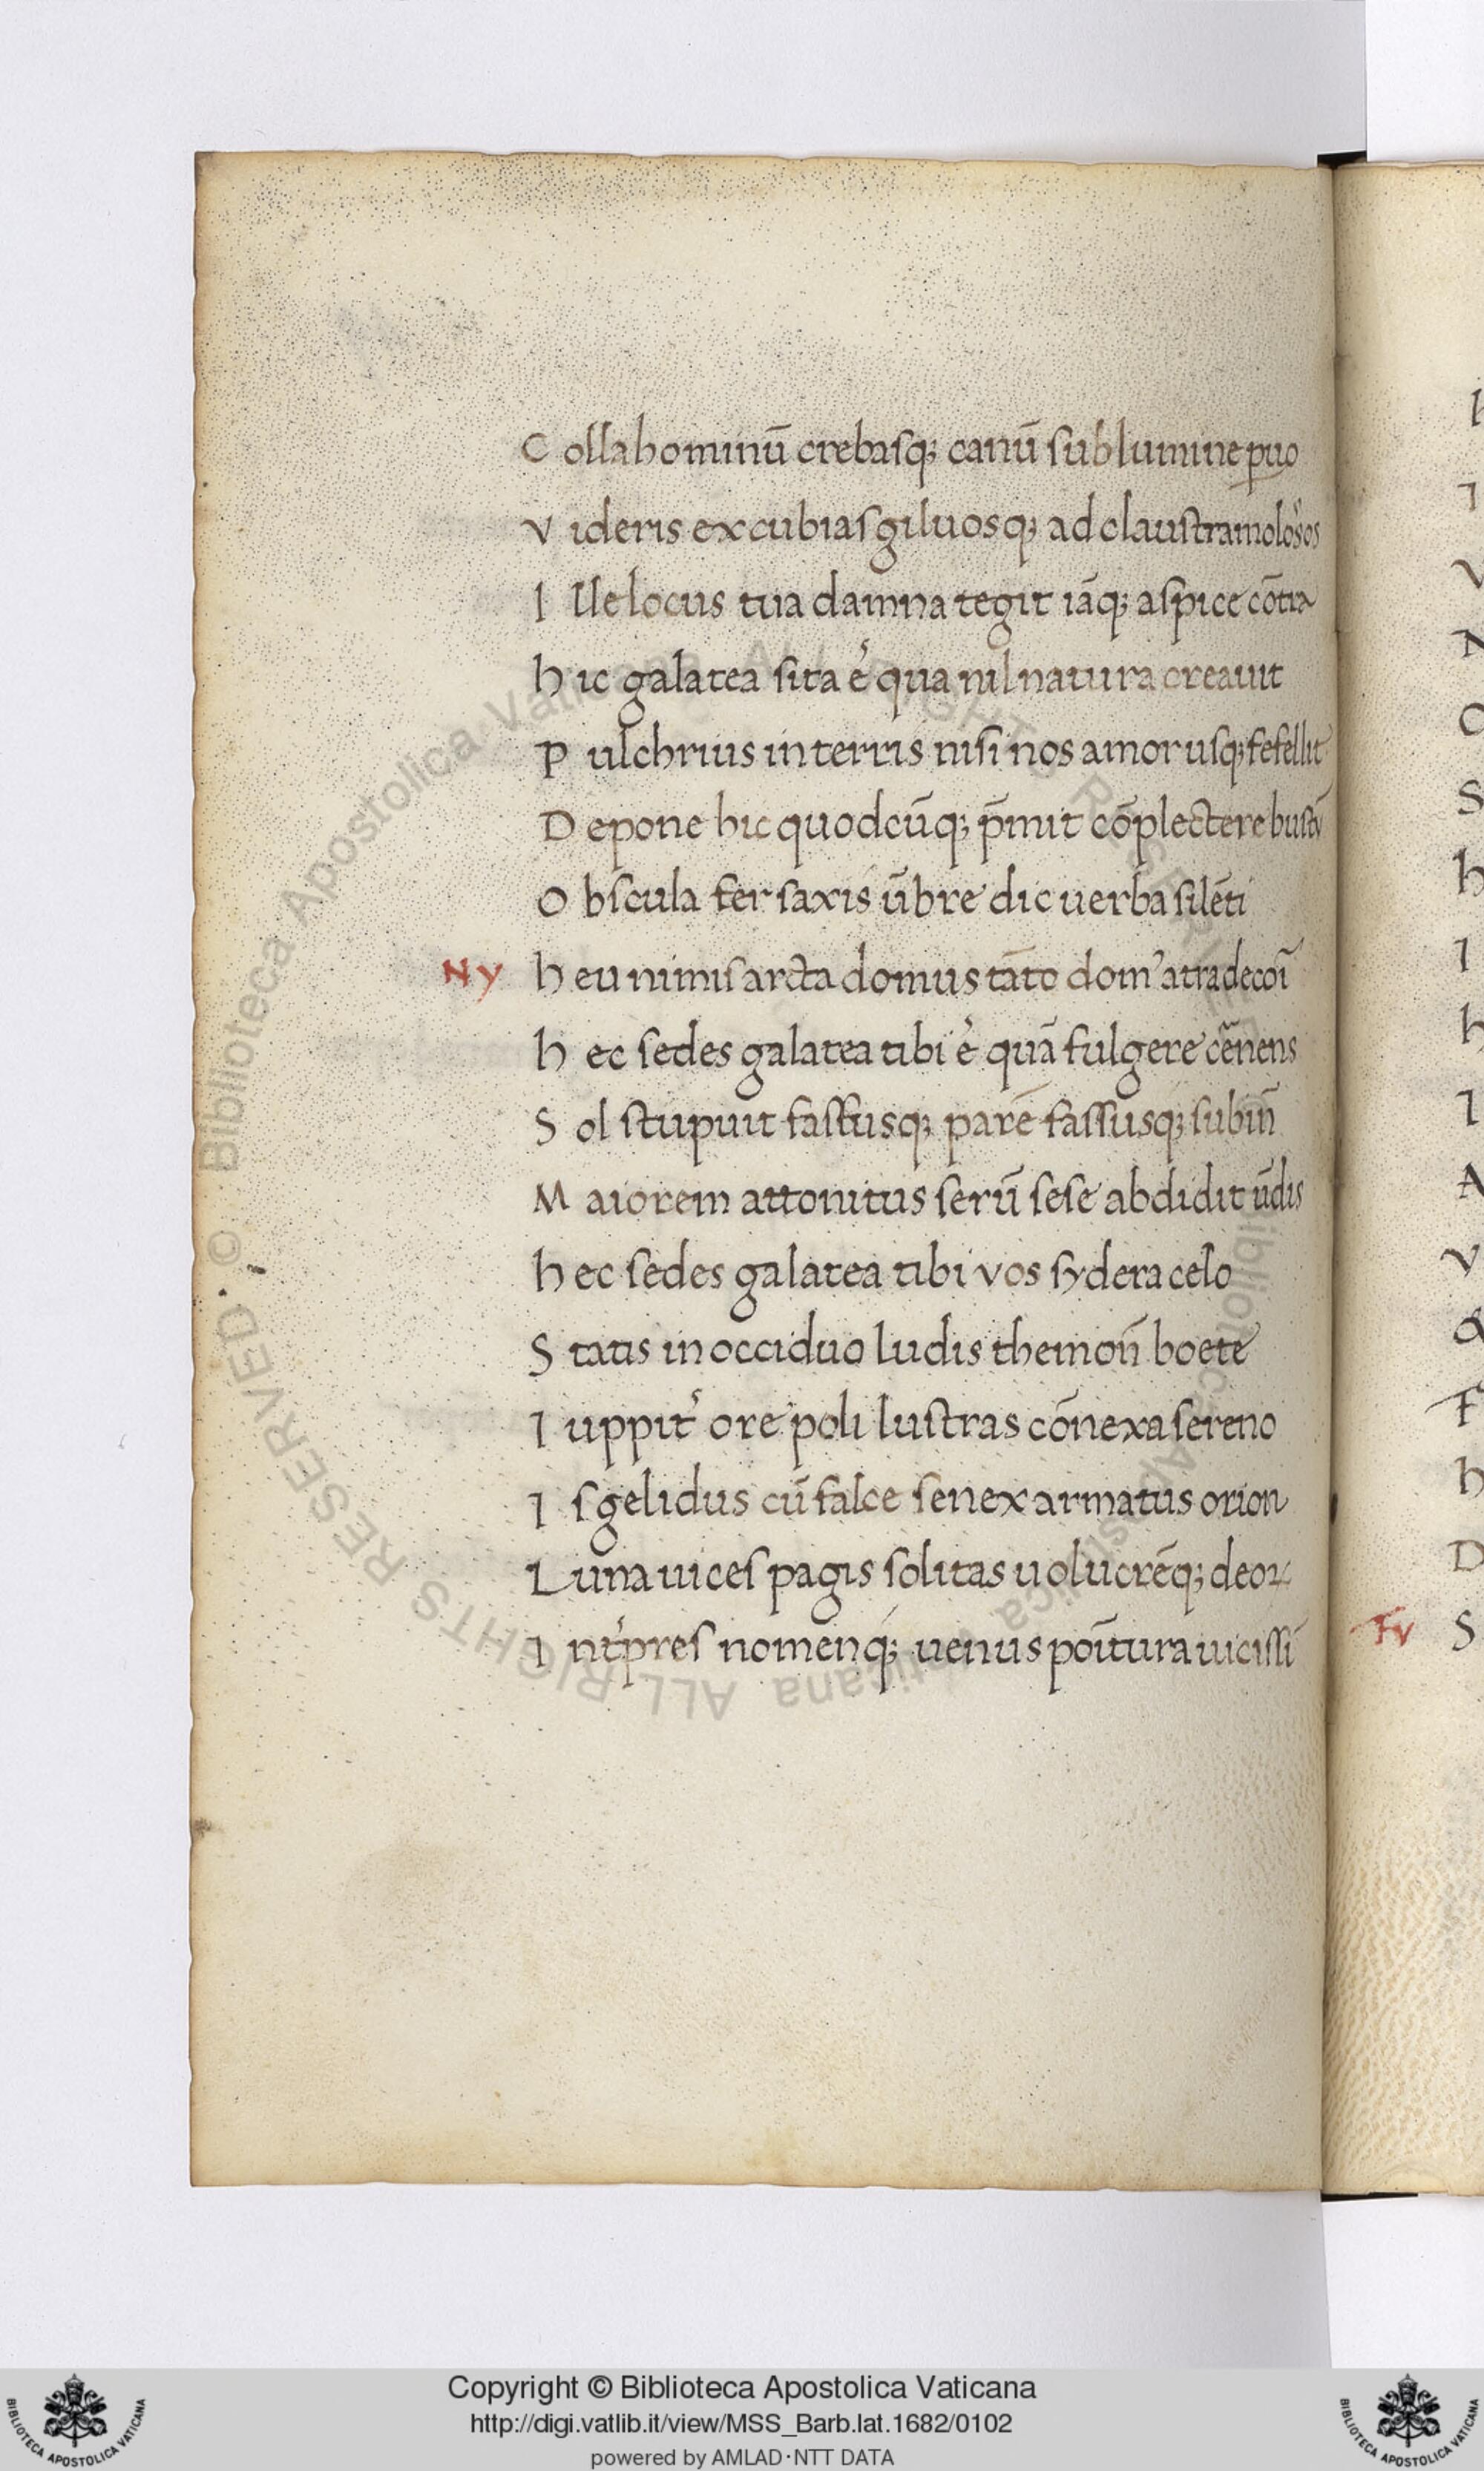 C olla hominū crebasq; canū sub lumine ꝑuo
V ideris excubias giluosq; ad claustra molosos
I lle locus tua damna tegit iāq; aspice cōtra
h ic galatea sita ē qua nil natura creauit
P ulchrius in terris nisi nos amor usq; fefellit
D epone hic quodcūq; p̄mit cōplectere bustū
O bscula fer saxis ūbre dic uerba silēti
Ny h eu nimis arcta domus tāto dom' atra decori
h ec sedes galatea tibi ē quā fulgere cēnens
S ol stupuit fassusq; parē fassusq; subin̄
M aiorem attonitus serū sese abdidit ūdis
h ec sedes galatea tibi vos sydera celo
S tatis in occiduo ludis themon̄ boete
I uppit' ore poli lustras cōnexa sereno
I s gelidus cū falce senex armatus orion
L una uices pagis solitas uolucrēq; deoꝝ
I nt'pres nomenq; uenus poītura uicissī
h
I
V
N
C
S
h
I
h
I
A
V
Q
F
h
D
Fv S
Copyright © Biblioteca Apostolica Vaticana
http://digi.vatlib.it/view/MSS_Barb.lat.1682/0102
powered by AMLAD·NTT DATA
BIBLIOTECA APOSTOLICA VATICANA
BIBLIOTECA APOSTOLICA VATICANA
© Biblioteca Apostolica Vaticana ALL RIGHTS RESERVED